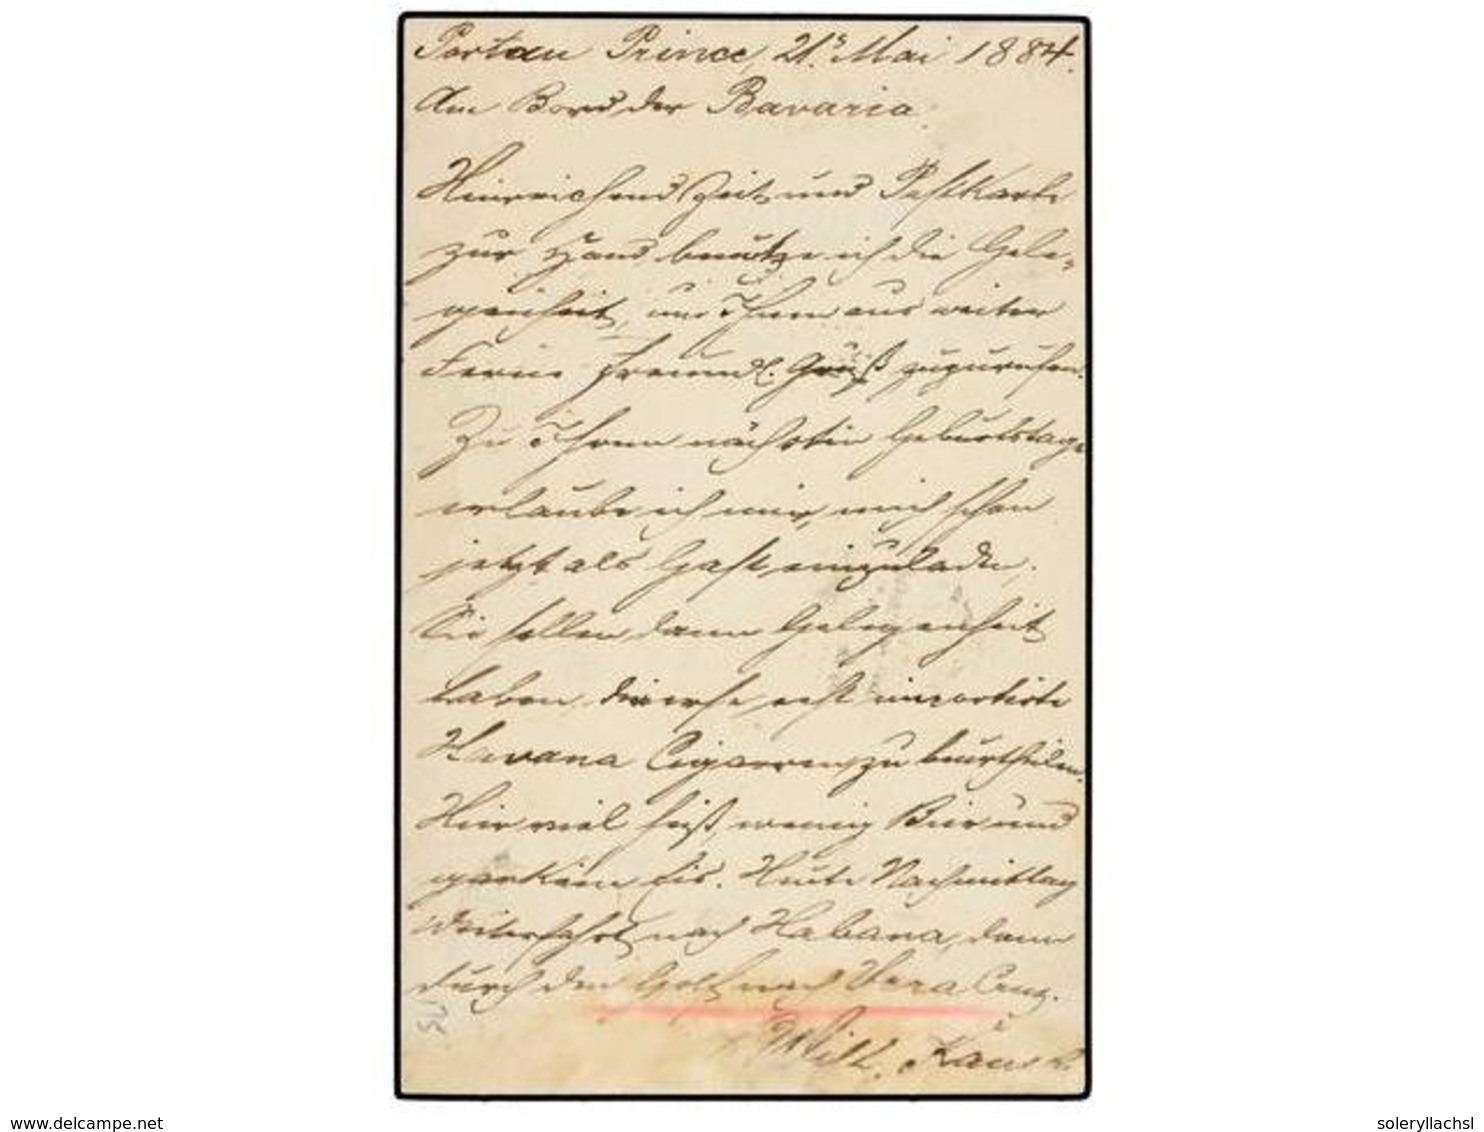 Port au Prince, 21s. Mai 1884.
Am Bord der Bavaria.
Hinreichend Zeit und Postkarte
zur Hand, benutze ich die Gele-
genheit, um Ihnen aus weiter
Ferne freundl. Gruß zuzurufen.
Zu Ihrem nächsten Geburtstage
erlaube ich mir, mich schon
jetzt als Gast einzuladen.
Sie sollen dann Gelegenheit
haben, diverse echt importirte
Havana Cigarren zu beurtheilen.
Hier viel heiß, wenig Bier und
gar kein Eis. Heute Nachmittag
Weiterfahrt nach Habana, dann
durch den Golf nach Vera Cruz.
Wilh.
www.delcampe.net
soleryllachsl